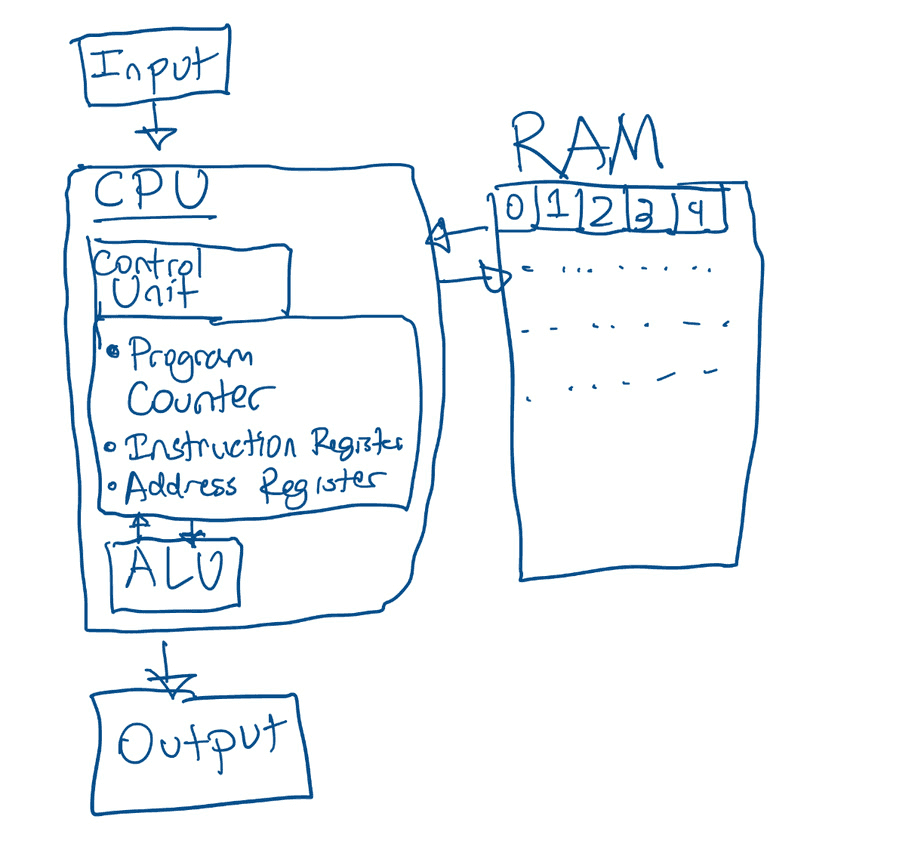 Input
RAM
CPU
0 1 2 3 4
Control
Unit
• Program
Counter
• Instruction Register
• Address Register
ALU
Output